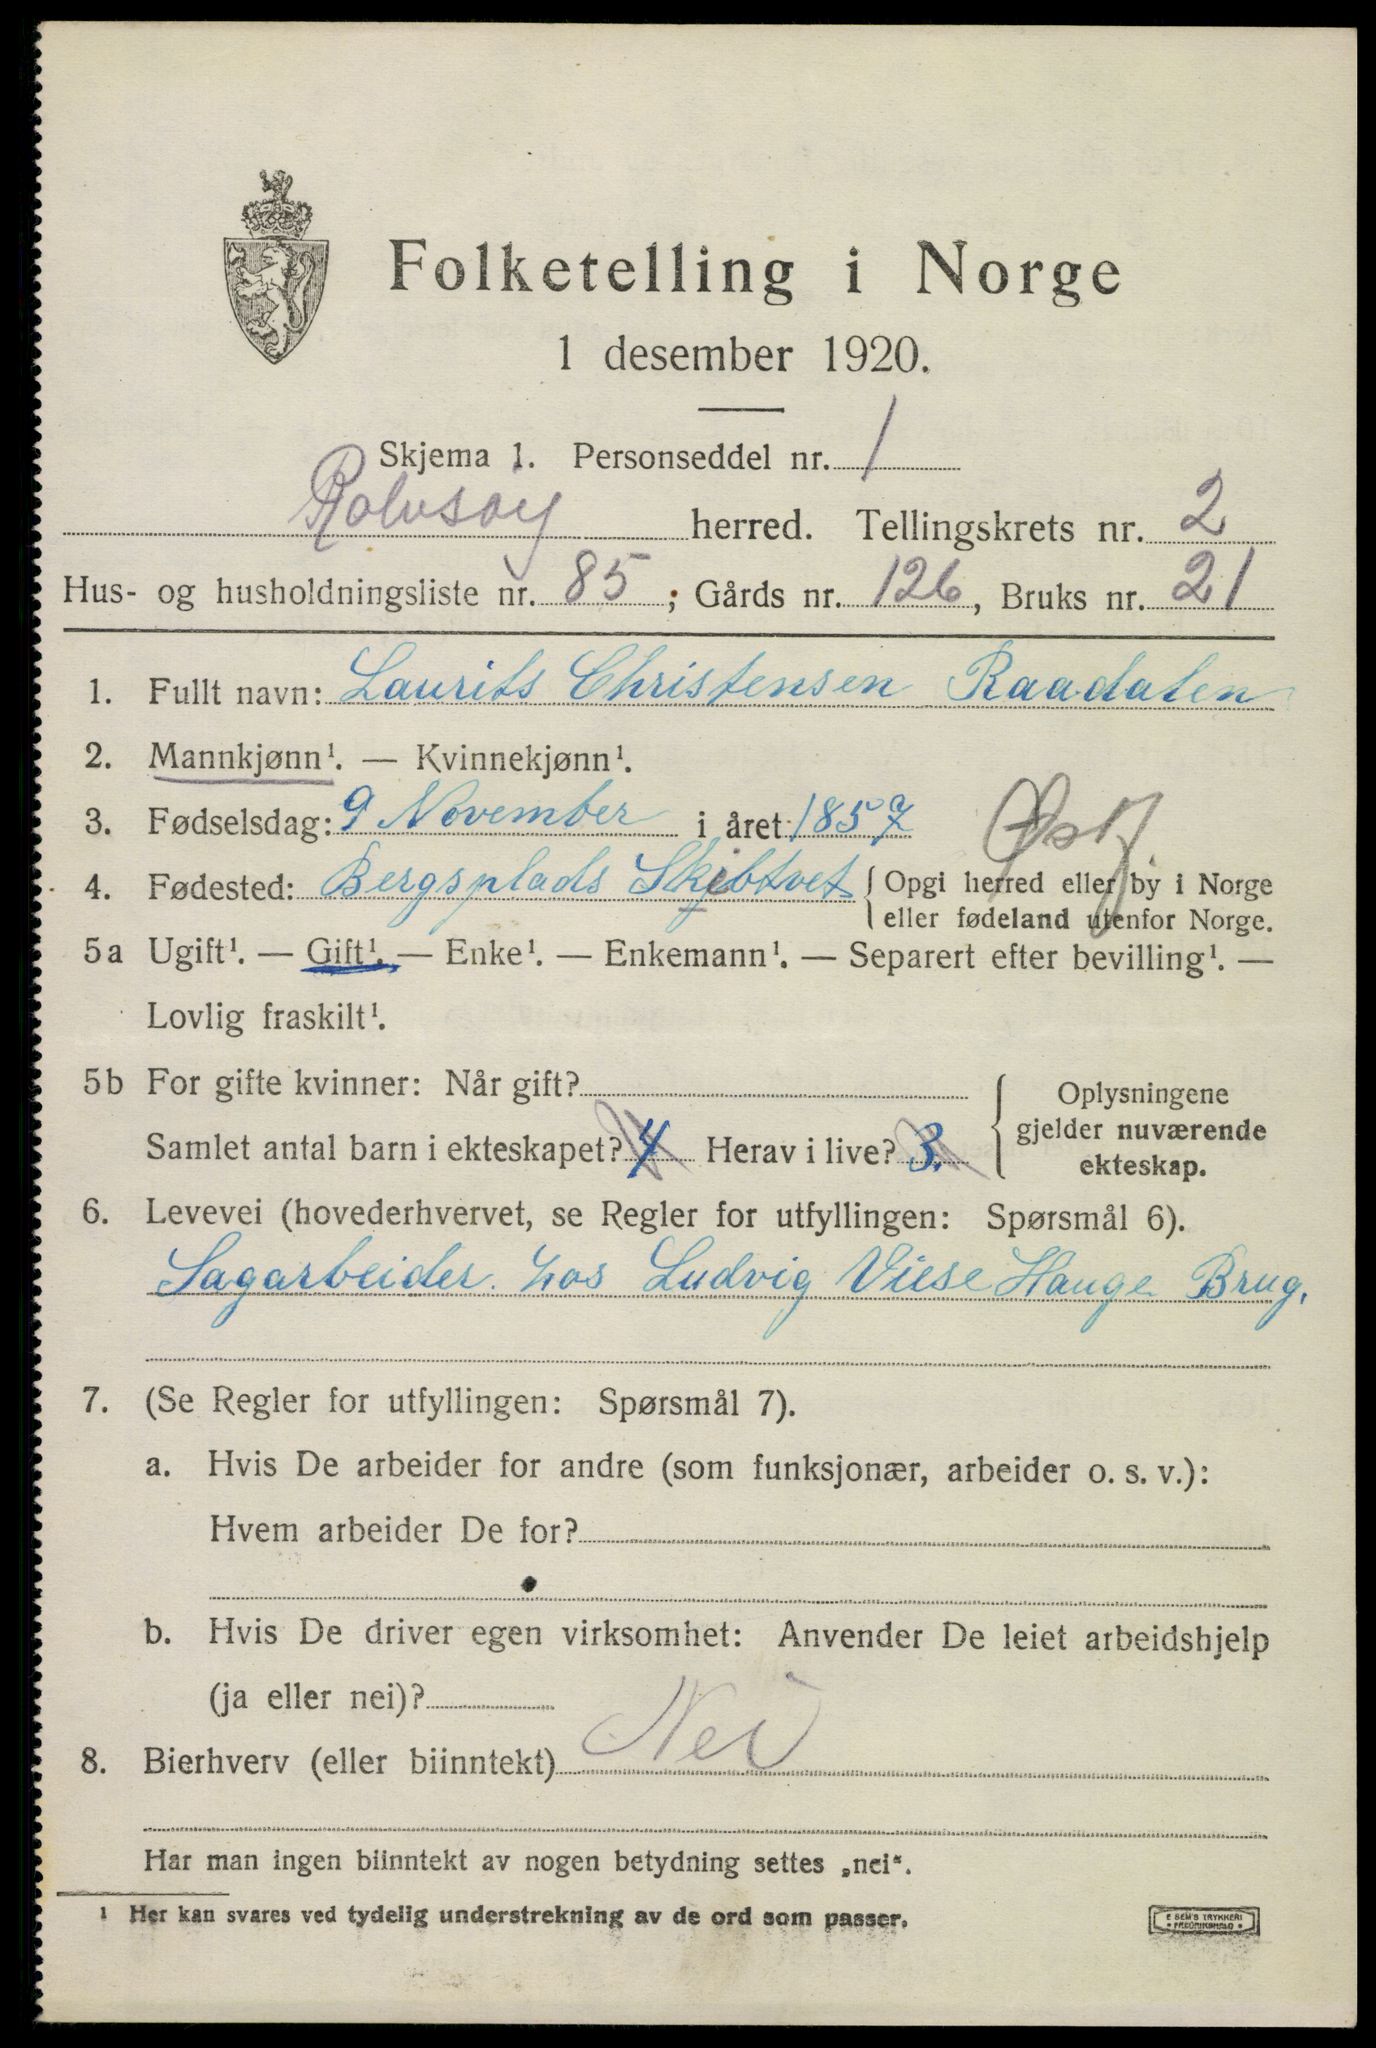 Folketelling i Norge
1 desember 1920.
Skjema 1. Personseddel nr. 1
Rolvsøy herred. Tellingskrets nr. 2
Hus- og husholdningsliste nr. 85; Gårds nr. 126, Bruks nr. 21
1. Fullt navn: Laurits Christensen Raadalen
2. Mannkjønn¹. — Kvinnekjønn¹.
3. Fødselsdag: 9 November i året 1857 Østf
4. Fødested: Bergsplads Skibtvet { Opgi herred eller by i Norge
eller fødeland utenfor Norge.
5a Ugift¹. — Gift¹. — Enke¹. — Enkemann¹. — Separert efter bevilling¹. —
Lovlig fraskilt¹.
5b For gifte kvinner: Når gift?
Samlet antal barn i ekteskapet? 4 Herav i live? 3.
{ Oplysningene
gjelder nuværende
ekteskap.
6. Levevei (hovederhvervet, se Regler for utfyllingen: Spørsmål 6).
Sagarbeider. hos Ludvig Viese Hauge Brug.
7. (Se Regler for utfyllingen: Spørsmål 7).
a. Hvis De arbeider for andre (som funksjonær, arbeider o. s. v.):
Hvem arbeider De for?
b. Hvis De driver egen virksomhet: Anvender De leiet arbeidshjelp
(ja eller nei)?
8. Bierhverv (eller biinntekt) Nei
Har man ingen biinntekt av nogen betydning settes „nei“.
¹ Her kan svares ved tydelig understrekning av de ord som passer.
E SEM'S TRYKKERI
FREDRIKSHALD